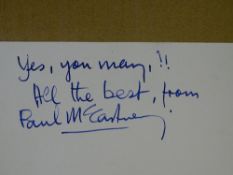 Yes, you may, !!
All the best, from
Paul McCartney